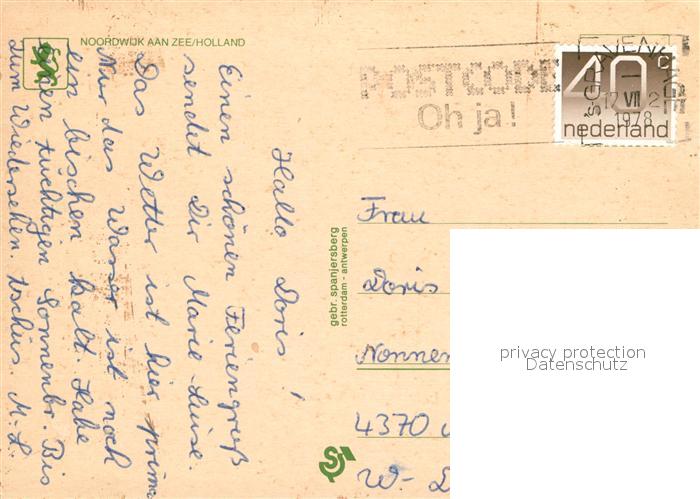 NOORDWIJK AAN ZEE/HOLLAND
POSTCODE
Oh ja!
's-GRAVENHAGE
17 VII 2
1978
40 c
nederland
Hallo Doris!
Einen schönen Feriengruß
sendet Dir Marie-Luise.
Das Wetter ist hier prima
Nur das Wasser ist noch
ein bischen kalt. Habe
einen tüchtigen Sonnenbr. Bis
zum Wiedersehen. tschüs M.-L.
gebr. spanjersberg
rotterdam - antwerpen
Frau
Doris
Nonnen
4370
W-
privacy protection
Datenschutz